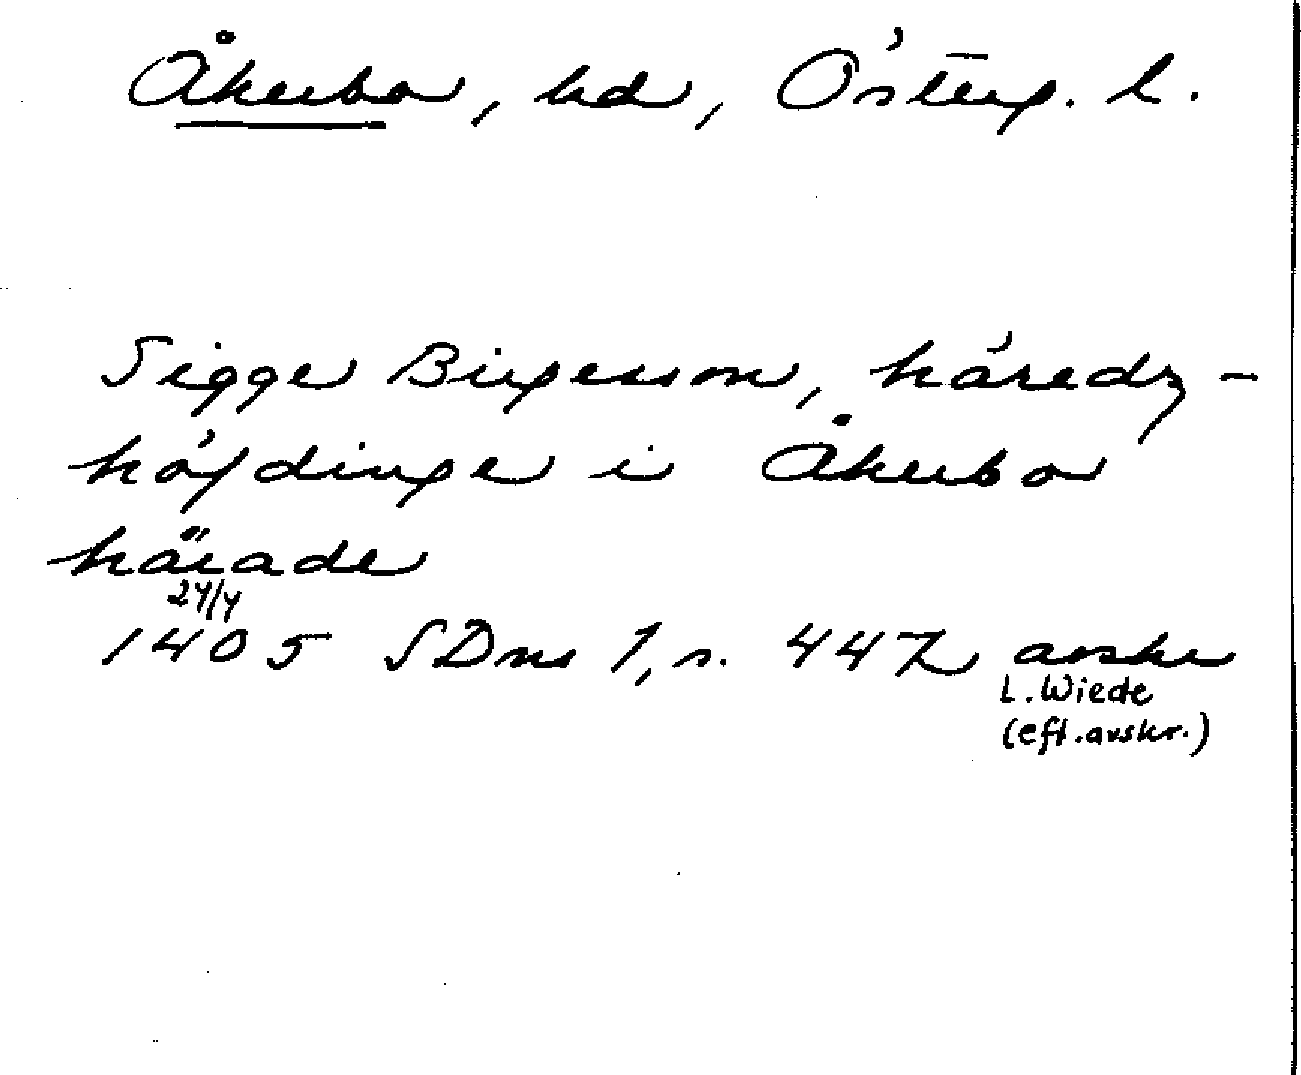 Åkerbo, hd, Österg. l.
Sigge Birgersson, häredz-
höfdinge i Åkerbo
härade
24/4
1405 SDns 1, s. 447 avskr
L. Wiede
(eft. avskr.)